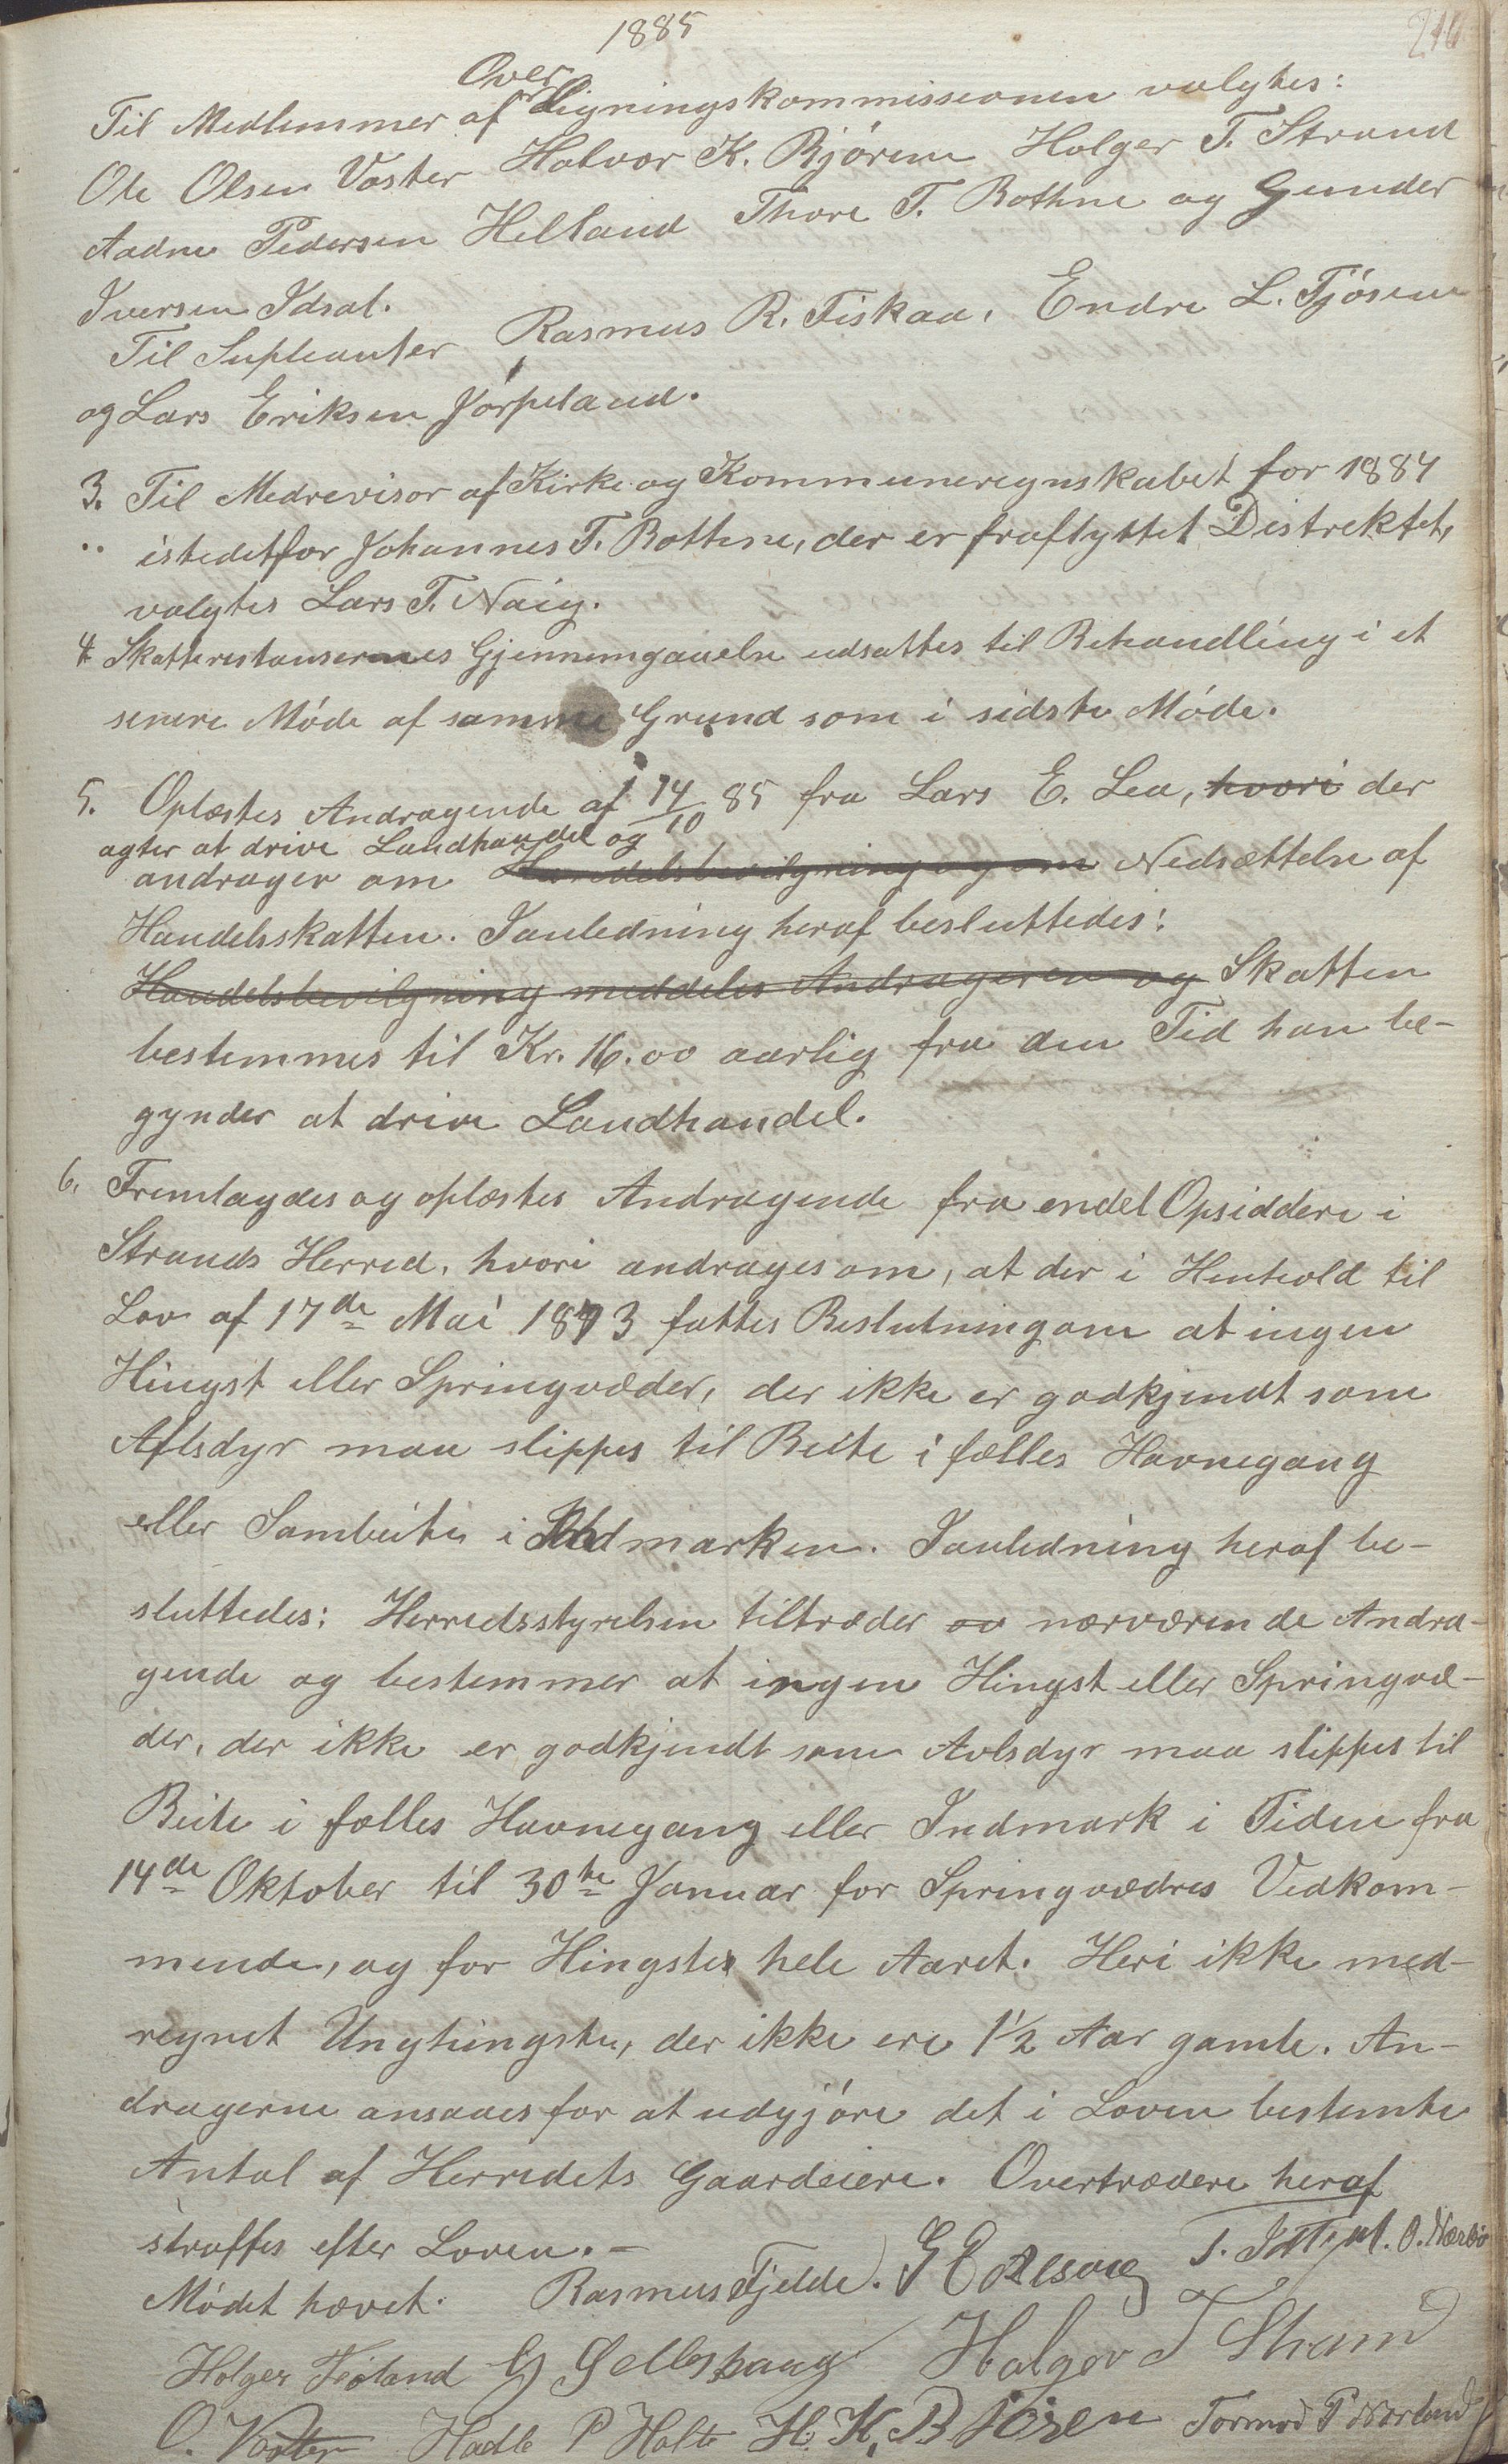 1885
210
Over
Til Medlemmer af Ligningskommissionen valgtes:
Ole Olsen Vaster Halvor K. Bjøren Holger T. Strand
Aadne Pedersen Helland Thore T. Bothne og Gunder
Iversen Idsal.
Til Supleanter Rasmus R. Fiskaa, Endre L. Tjøsem
og Lars Eriksen Jørpeland.
3. Til Medrevisor af Kirke og Kommuneregnskabet for 1884
istedetfor Johannes T. Bothne, der er fraflyttet Distrektet,
valgtes Lars T. Naig.
4 Skatterestansernes Gjennemgaaelse udsattes til Behandling i et
senere Møde af samme Grund som i sidste Møde.
5. Oplæstes Andragende af 14/10 85 fra Lars E. Lea, hvori der
agter at drive Landhandel og
andrager om Handelsbevilgning og om Nedsættelse af
Handelsskatten. Ianledning heraf besluttedes:
Handelsbevilgning meddeles Andrageren og Skatten
bestemmes til Kr. 16.00 aarlig fra den Tid han be-
gynder at drive Landhandel.
6. Fremlagdes og oplæstes Andragende fra endel Opsiddere i
Strands Herred, hvori andrages om, at der i Henhold til
Lov af 17de Mai 1873 fattes Beslutning om at ingen
Hingst eller Springvæder, der ikke er godkjendt som
Aflsdyr maa slippes til Beite i fælles Havnegang
eller Sambeite i Indmarken. Ianledning heraf be-
sluttedes: Herredsstyrelsen tiltræder ov nærværende Andra-
gende og bestemmer at ingen Hingst eller Springvæ-
der, der ikke er godkjendt som Avlsdyr maa slippes til
Beite i fælles Havnegang eller Indmark i Tiden fra
14de Oktober til 30te Januar for Springvædres Vedkom-
mende, og for Hingster hele Aaret. Heri ikke med-
regnet Unghingste, der ikke ere 1½ Aar gamle. An-
dragerne ansaaes for at udgjøre det i Loven bestemte
Antal af Herredets Gaardeiere. Overtrædere heraf
straffes efter Loven.-
Mødet hævet. Rasmus Fjelde. T. O. Nærbø
Holger Holger T Strand
O. Vaster Hadle P Holte H. K. Bjøren Tormod P Nørland